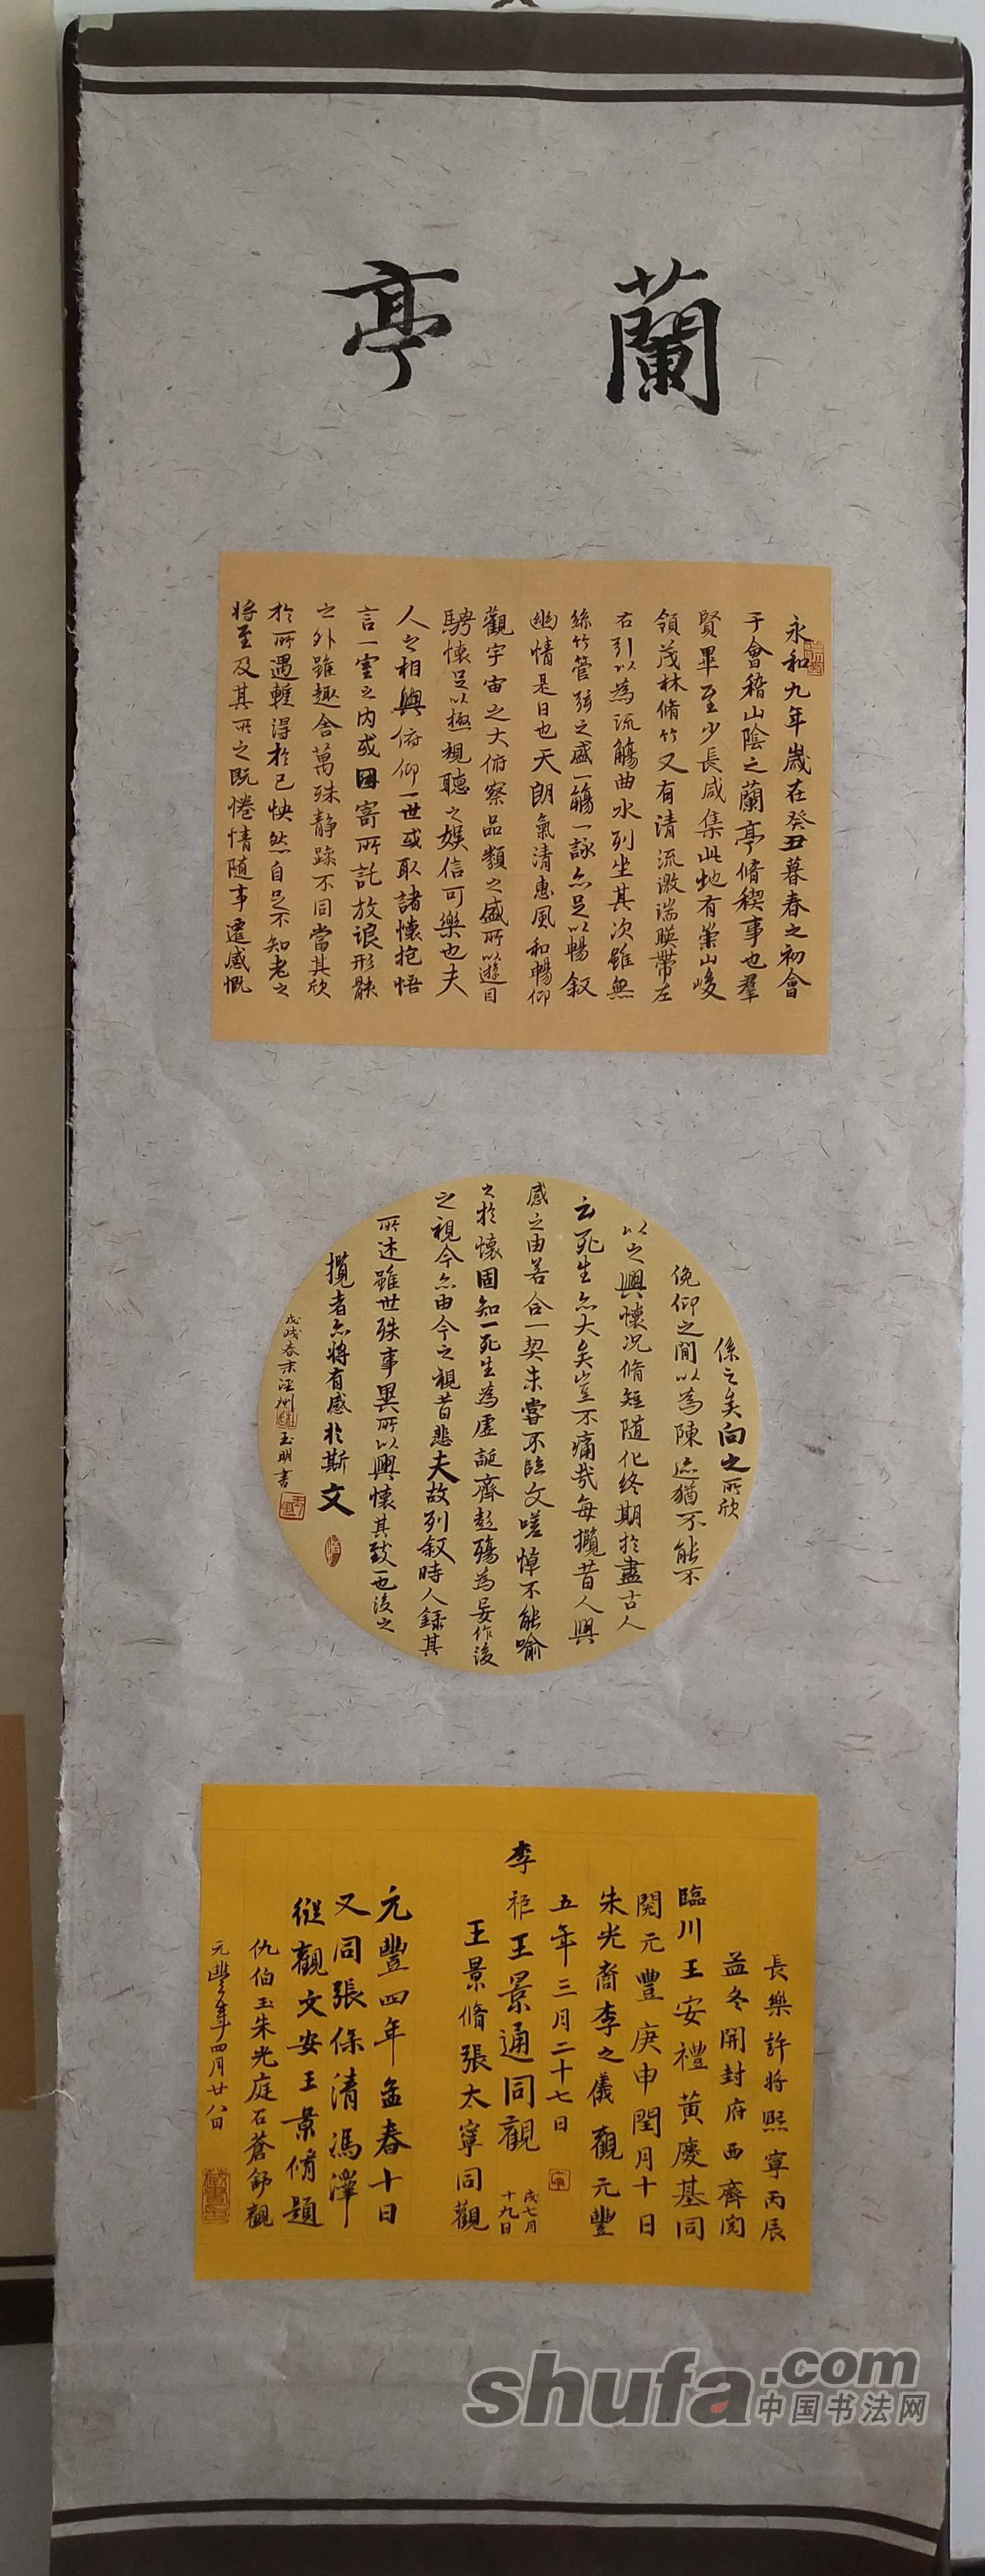 蘭亭
永和九年歲在癸丑暮春之初會
于會稽山陰之蘭亭脩稧事也羣
賢畢至少長咸集此地有崇山峻
領茂林脩竹又有清流激湍暎帶左
右引以為流觴曲水列坐其次雖無
絲竹管弦之盛一觴一詠亦足以暢叙
幽情是日也天朗氣清惠風和暢仰
觀宇宙之大俯察品類之盛所以遊目
騁懷足以極視聽之娛信可樂也夫
人之相與俯仰一世或取諸懷抱悟
言一室之內或因寄所託放浪形骸
之外雖趣舍萬殊静躁不同當其欣
於所遇蹔得於己快然自足不知老之
將至及其所之既惓情随事遷感慨
係之矣向之所欣
俛仰之閒以為陳迹猶不能不
以之興懷況脩短随化終期於盡古人
云死生亦大矣豈不痛哉每攬昔人興
感之由若合一契未嘗不臨文嗟悼不能喻
之於懷固知一死生為虛誕齊彭殤為妄作後
之視今亦由今之視昔悲夫故列叙時人録其
所述雖世殊事異所以興懷其致一也後之
攬者亦將有感於斯文
戊戌春末涇州
玉明書
長樂許將熙寧丙辰
孟冬開封府西齋閱
臨川王安禮黃慶基同
閱元豐庚申閏月十日
朱光裔李之儀觀元豐
五年三月二十七日
李秬王景通同觀
戊七月
十九日
王景脩張太寧同觀
元豐四年孟春十日
又同張保清馮澤
縱觀文安王景脩題
仇伯玉朱光庭石蒼舒觀
元豐年四月廿八日
shufa.com
中国书法网